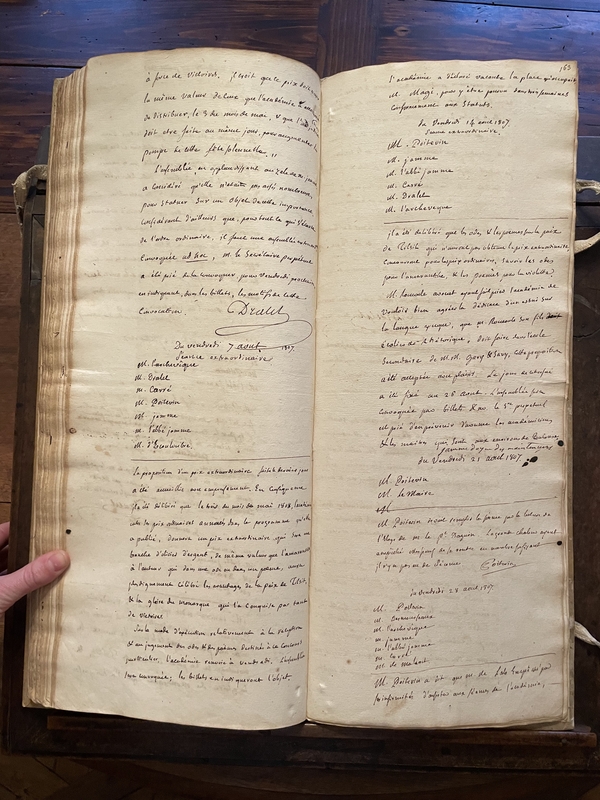 à force de victoires. Il croit que ce prix doit être de
la même valeur de ceux que l'académie a coutume
de distribuer, le 3 de mois de mai, & que l'
doit être faite au même jour, pour augmenter la
pompe de cette fête solennelle. "
L'assemblée en applaudissant au zèle de
a considéré qu'elle n'était pas assés nombreuse,
pour statuer sur un objet de cette importance
considérant d'ailleurs que, pour tout ce qui s'écarte
de l'ordre ordinaire, il faut une assemblée
convoquée ad hoc, M. le Secrétaire perpétuel
a été prié de la convoquer pour vendredi prochain
en indiquant, dans les billets, les motifs de cette
convocation. Dralet
Du vendredi 7 aout 1807
Séance extraordinaire
M. l'archevêque
M. Dralet
M. Carré
M. Poitevin
M. jamme
M. l'abbé jamme
M. d'Escouloubre
La proposition d'un prix extraordinaire faite la dernière séance
a été accueillie avec empressement. En conséquence
il a été délibéré que le trois du mois de mai 1808,
de prix ordinaires annoncés dans le programme qu'elle
a publié, donnera un prix extraordinaire qui sera une
branche d'olivier d'argent, de même valeur que l'amaranthe
à l'auteur qui dans une ode ou dans un poème, aura
plus dignement célébré les avantages de la paix de Tilsit,
& la gloire du monarque qui l'a conquise par tant
de victoires
Sur le mode d'opération relativement à la réception
et au jugement des odes & des poèmes destinés à ce concours
l'académie renvoie à vendredi. L'assemblée
sera convoquée; les billets en indiqueront l'objet
163
L'académie a déclaré vacante la place qu'occupait
M. Magi, pour y être pourvu dans trois semaines
conformément aux statuts.
du Vendredi 14 aout 1807
Séance extraordinaire.
M. Poitevin
M. jamme
M. l'abbé jamme
M. Carré
M. Dralet
M. l'archevêque
Il a été délibéré que les odes, & les poèmes sur la paix
de Tilsit qui n'auront pas obtenu le prix extraordinaire
concourront pour les prix ordinaires, savoir les odes
pour l'amaranthe, & les poèmes pour la violette.
M. ayant fait prier l'académie de
vouloir bien agréer la dédicace d'un essai sur
la langue que M. son fils
écolier de rhétorique, doit faire dans l'école
secondaire de MM. Gary & Savy, cette proposition
a été acceptée avec plaisir. Le jour de cet essai
a été fixé au 28 aout. L'assemblée sera
convoquée par billets & M. le S.re perpétuel
est prié d'en prévenir d'avance les académiciens
& les maitres qui sont aux environs de Toulouse.
du Vendredi 21 aout 1807.
M. Poitevin
M. le Maire
M. Poitevin devant remplir la séance par la lecture de
l'éloge de M. le p.t
empêché de se rendre
il n'y a point de séance Poitevin
du Vendredi 28 aout 1807
M. Poitevin
M.
M. l'archevêque
M. jamme
M. l'abbé jamme
M. Carré
M. de Malaret
M. Poitevin a dit que M. de
infirmités d'assister aux séances de l'académie,